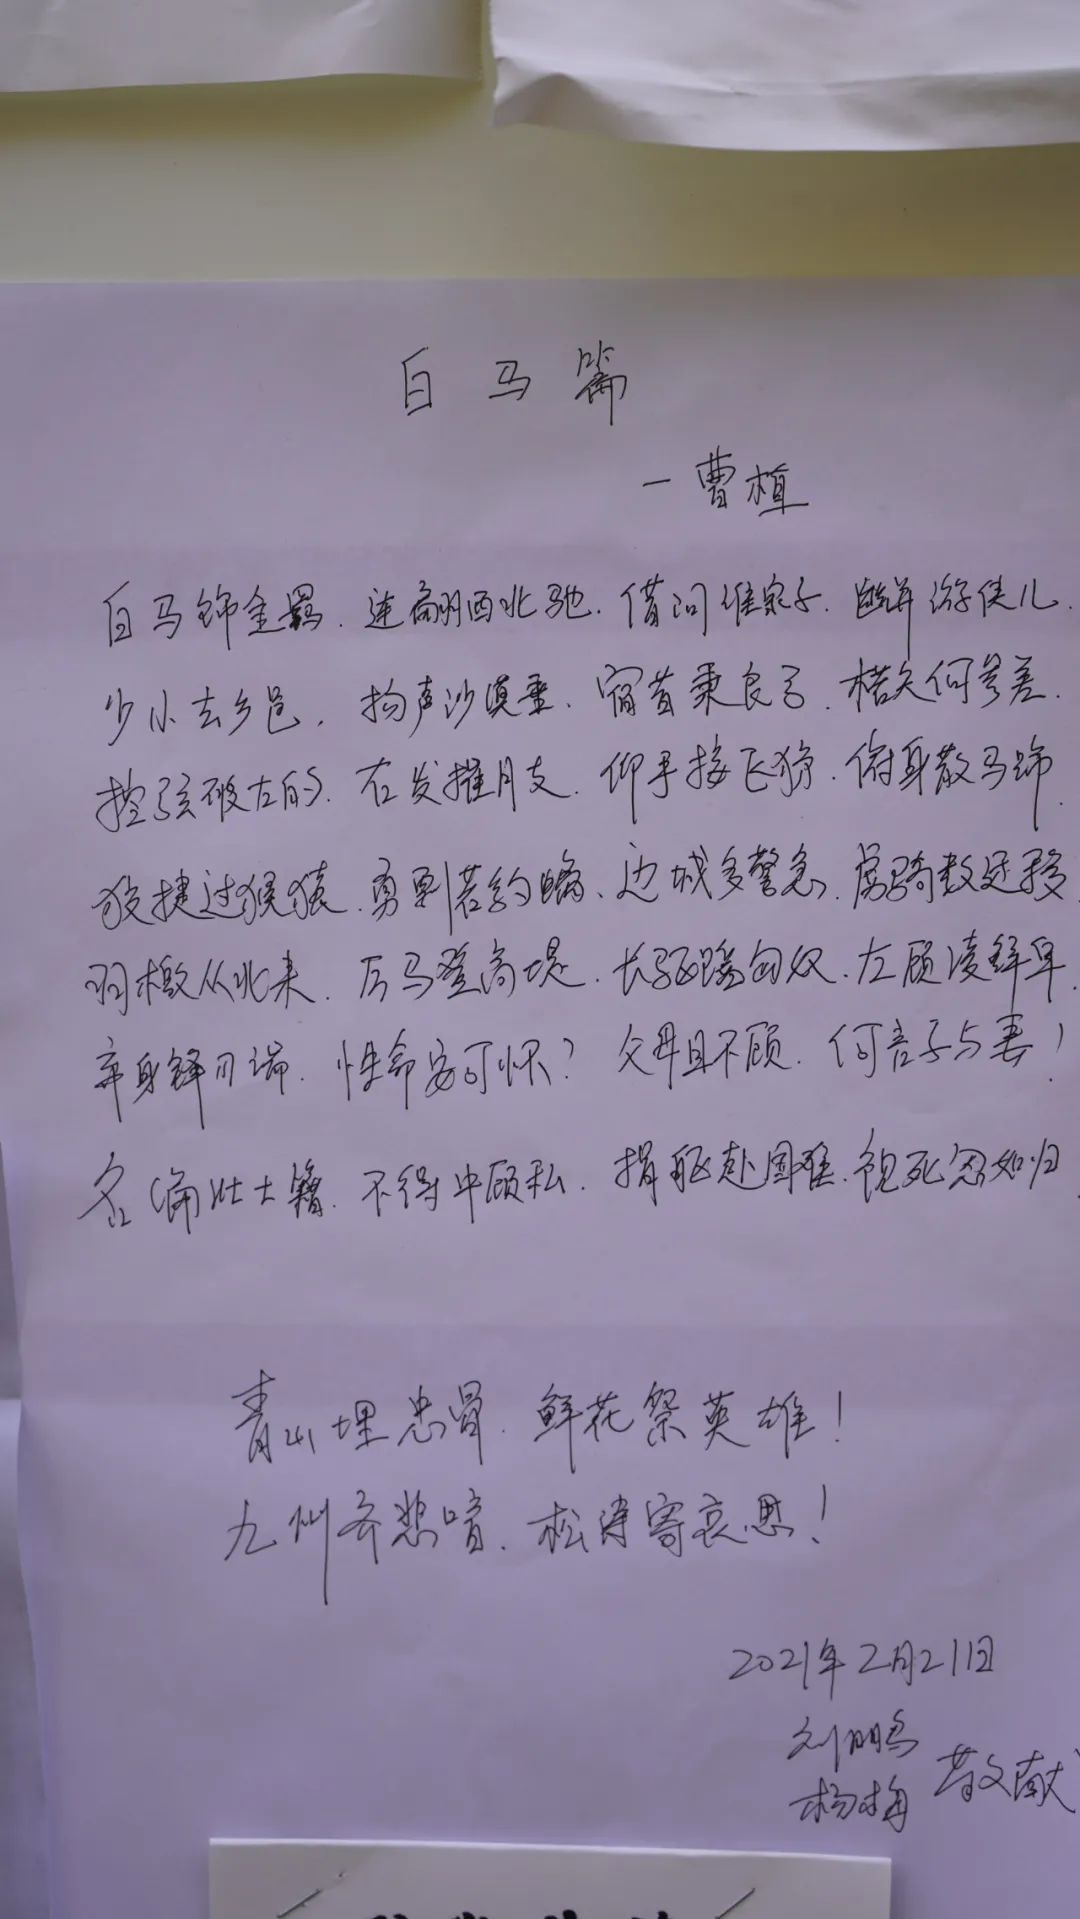 白马篇
一曹植
白马饰金羁.连翩西北驰.借问谁家子.幽并游侠儿.
少小去乡邑,扬声沙漠垂.宿昔秉良弓.楛矢何参差.
控弦破左的.右发摧月支.仰手接飞猱.俯身散马蹄.
狡捷过猴猿.勇剽若豹螭.边城多警急.虏骑数迁移.
羽檄从北来.厉马登高堤.长驱蹈匈奴.左顾凌鲜卑.
弃身锋刃端.性命安可怀?父母且不顾.何言子与妻!
名编壮士籍.不得中顾私.捐躯赴国难.视死忽如归.
青山埋忠骨.鲜花祭英雄!
九州齐悲喑.松涛寄哀思!
2021年2月21日
刘鹏
杨梅 敬献